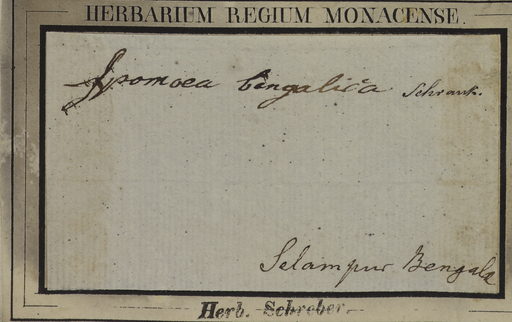 HERBARIUM REGIUM MONACENSE.
Ipomoea bengalica Schrank.
Selampur Bengala
Herb. Schreber.